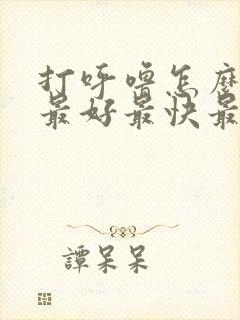 打呼噜怎麽
最好最快最
譚呆呆